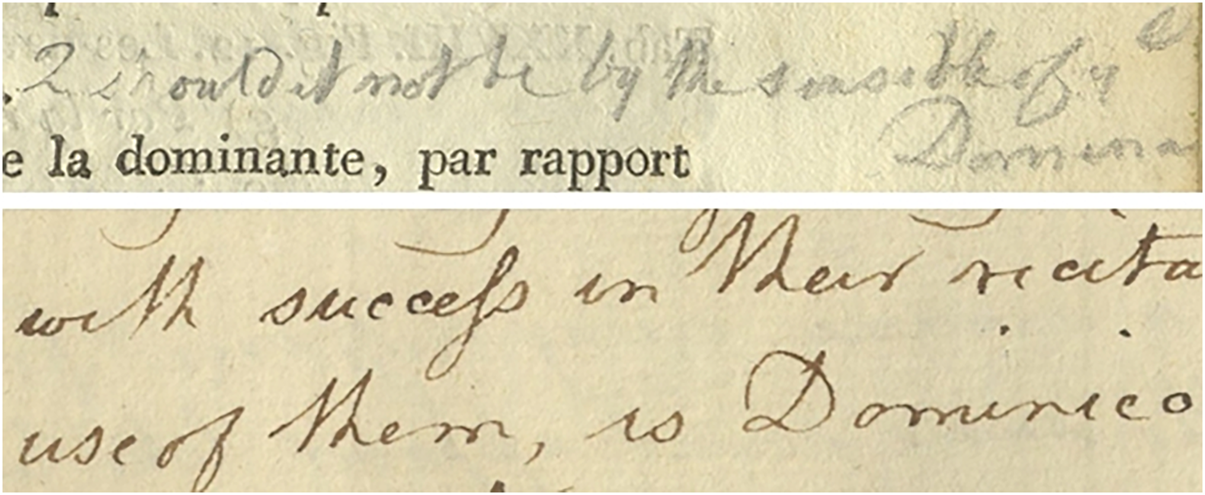 . Q should it not be by the sensible of ye
Domina
e la dominante, par rapport
with success in their recita
use of them, is Dominico